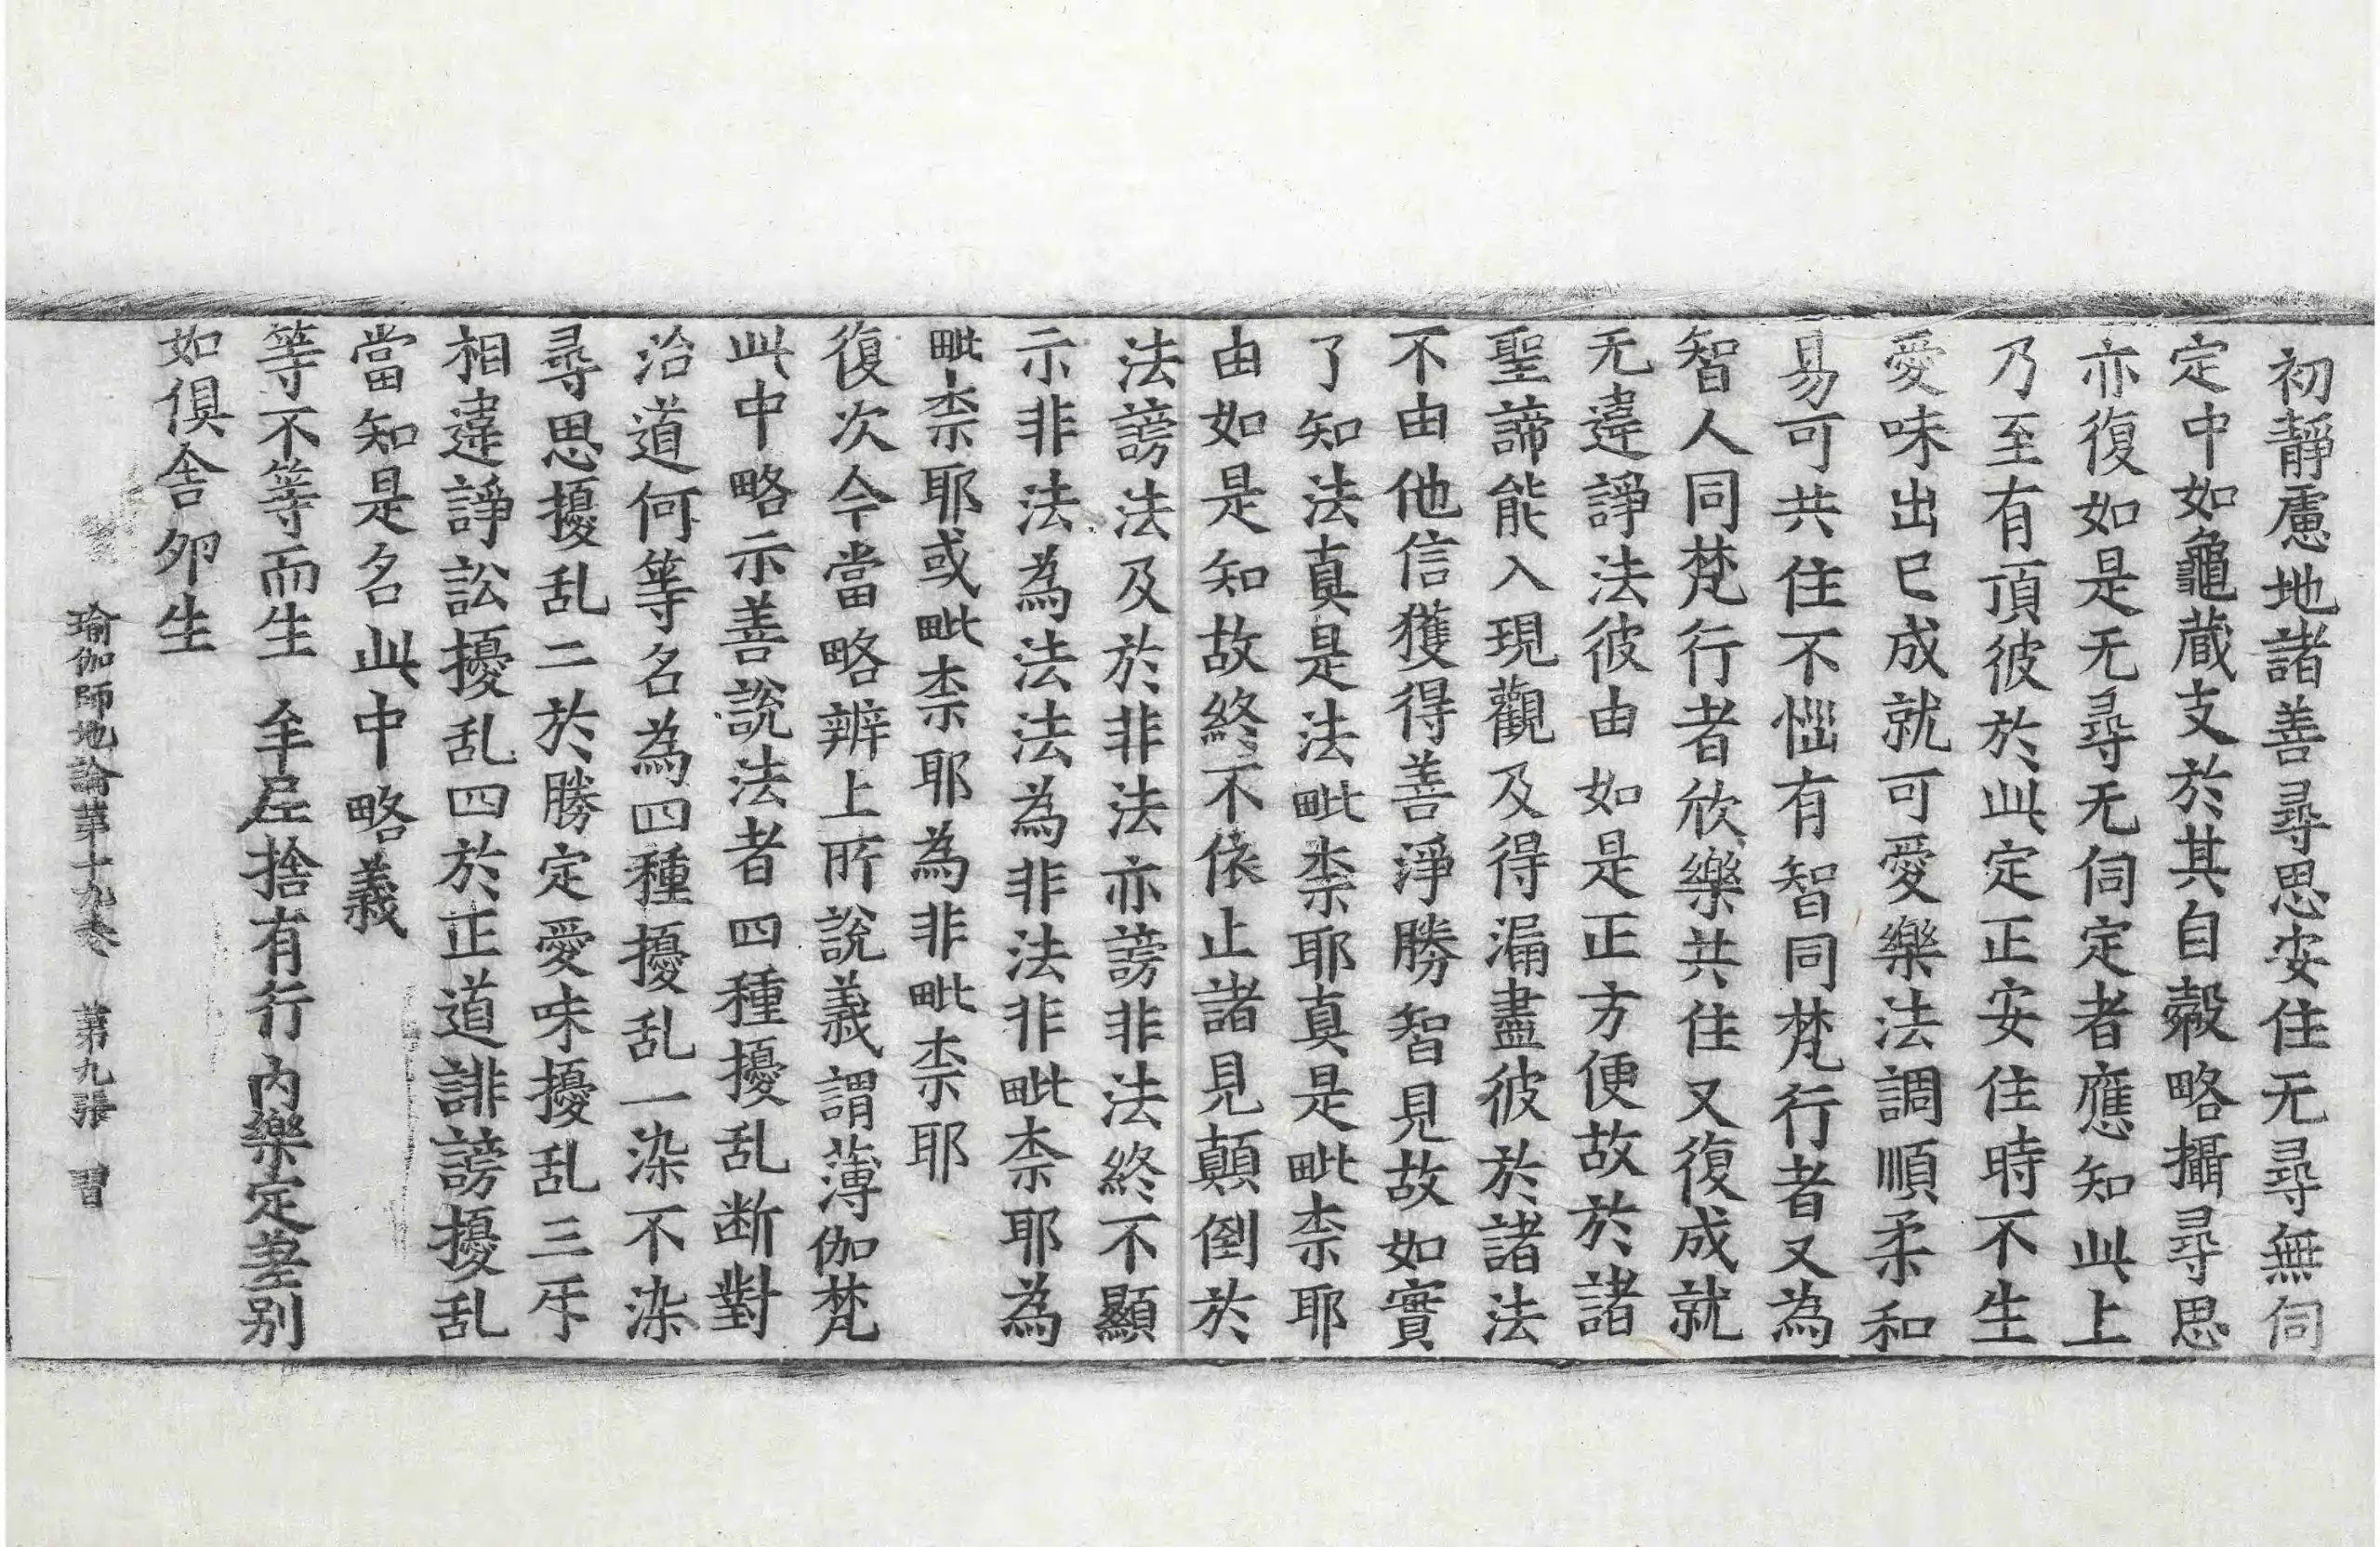 初靜慮地諸善尋思安住无尋無伺
定中如龜藏支於其自㲉略攝尋思
亦復如是无尋无伺定者應知此上
乃至有頂彼於此定正安住時不生
愛味出已成就可愛樂法調順柔和
易可共住不惱有智同梵行者又為
智人同梵行者欣樂共住又復成就
无違諍法彼由如是正方便故於諸
聖諦能入現觀及得漏盡彼於諸法
不由他信獲得善淨勝智見故如實
了知法真是法毗柰耶真是毗柰耶
由如是知故終不依止諸見顛倒於
法謗法及於非法亦謗非法終不顯
示非法為法法為非法非毗柰耶為
毗柰耶或毗柰耶為非毗柰耶
復次今當略辨上所說義謂薄伽梵
此中略示善說法者四種擾乱断對
治道何等名為四種擾乱一染不染
尋思擾乱二於勝定愛味擾乱三互
相違諍訟擾乱四於正道誹謗擾乱
當知是名此中略義
等不等而生　牟尼捨有行內樂定差别
如俱舍卵生
瑜伽師地論第十九卷　第九張　習